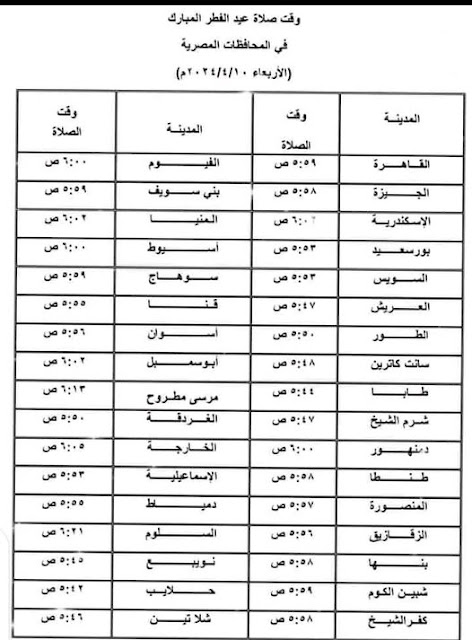 وقت صلاة عيد الفطر المبارك
في المحافظات المصرية
(الأربعاء ٢٠٢٤/٤/١٠م)
المدينة وقت الصلاة المدينة وقت الصلاة
القاهرة ٥:٥٩ ص الفيوم ٦:٠٠ ص
الجيزة ٥:٥٨ ص بني سويف ٥:٥٩ ص
الإسكندرية ص المنيا ٦:٠٢ ص
بورسعيد ٥:٥٣ ص أسيوط ٦:٠٠ ص
السويس ٥:٥٣ ص سوهاج ٥:٥٩ ص
العريش ٥:٤٧ ص قنا ٥:٥٥ ص
الطور ٥:٥٠ ص أسوان ٥:٥٦ ص
سانت كاترين ٥:٤٨ ص أبوسمبل ٦:٠٢ ص
طابا ٥:٤٤ ص مرسى مطروح ٦:١٣ ص
شرم الشيخ ٥:٤٧ ص الغردقة ٥:٥٠ ص
دمنهور ٦:٠٠ ص الخارجة ٦:٠٥ ص
طنطا ٥:٥٨ ص الإسماعيلية ٥:٥٣ ص
المنصورة ٥:٥٧ ص دمياط ٥:٥٥ ص
الزقازيق ٥:٥٦ ص السلوم ٦:٢١ ص
بنها ٥:٥٨ ص نويبع ٥:٤٥ ص
شبين الكوم ٥:٥٩ ص حلايب ٥:٤٢ ص
كفرالشيخ ٥:٥٨ ص شلاتين ٥:٤٦ ص